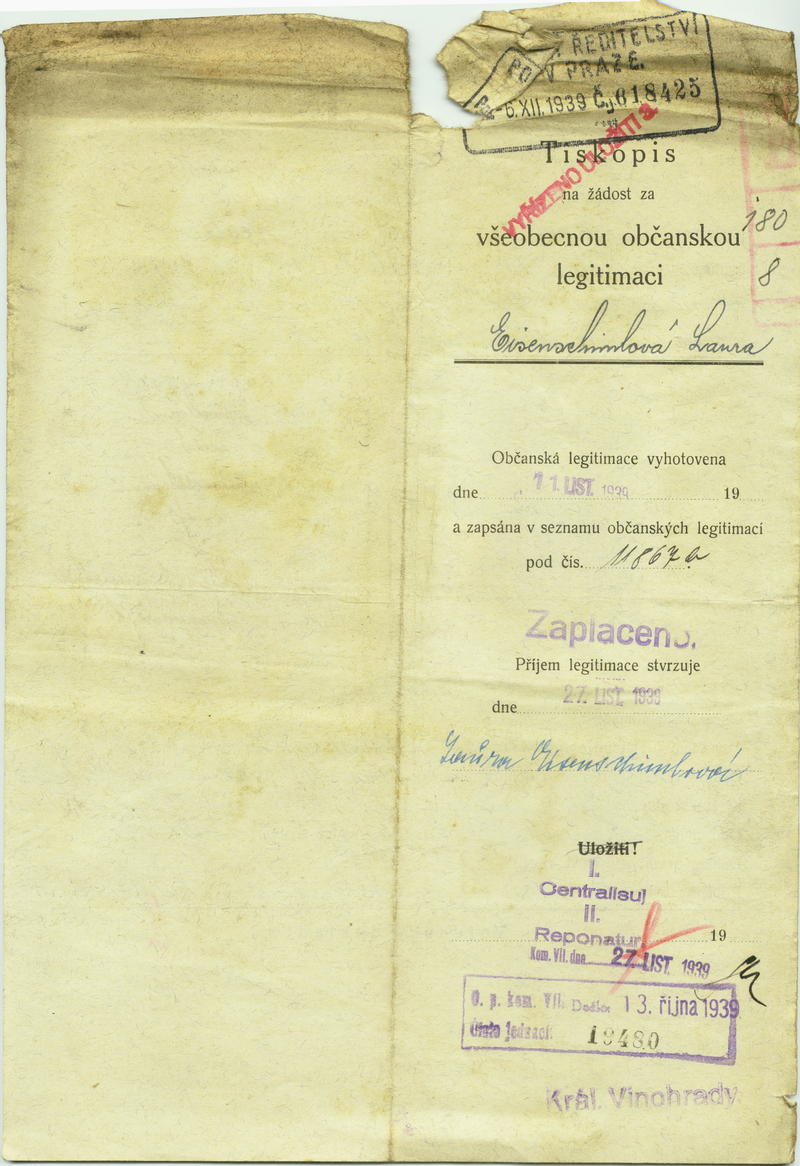 ŘEDITELSTVÍ
V PRAZE.
-6.XII.1939 Č.j. 618425
VYŘÍZENO ULOŽITI
Tiskopis
na žádost za
všeobecnou občanskou
180
legitimaci
8
Eisenschimlová Laura
Občanská legitimace vyhotovena
dne 11. LIST. 1939 19
a zapsána v seznamu občanských legitimací
pod čís. 11867
Zaplaceno.
Příjem legitimace stvrzuje
dne 27. LIST. 1939
Laura Eisenschimlová
Uložiti!
I.
Centralisuj
II.
Reponatur
19
Kom. VII. dne 27. LIST 1939
O. p. kom. VII. Došlo: 13. října 1939
Číslo jednací:
Král. Vinohrady